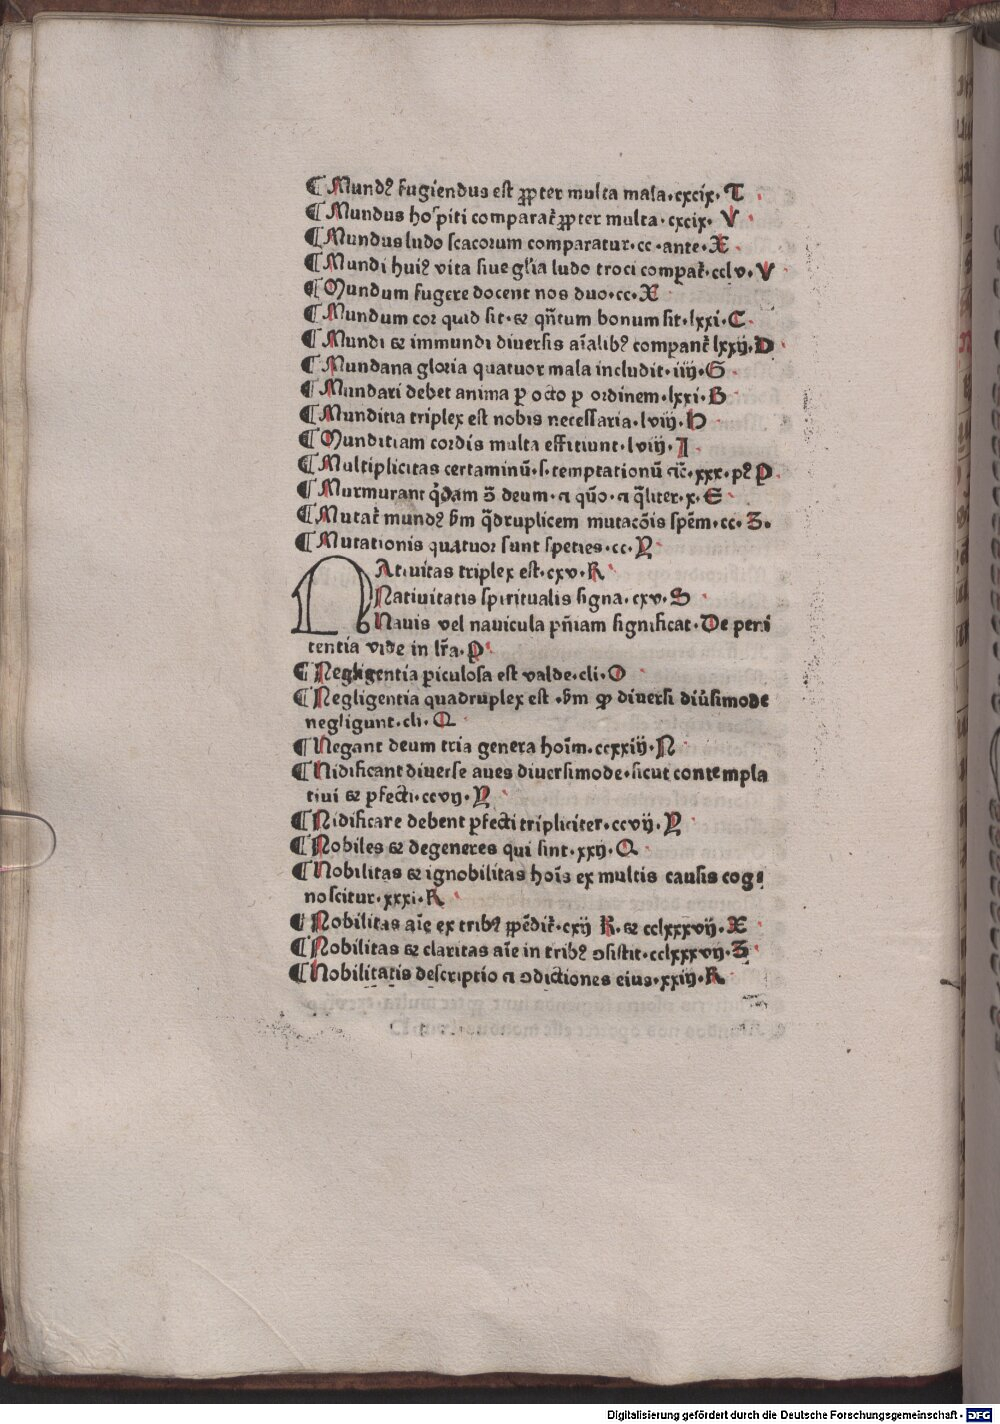 ¶ Mundꝰ fugiendus est ꝓpter multa mala·cxcix·T
¶ Mundus hospiti comparat᷑ ꝓpter multa·cxcix·V
¶ Mundus ludo scacorum comparatur·cc·ante·X
¶ Mundi huiꝰ vita siue gl̄ia ludo troci compat᷑·cclv·V
¶ Mundum fugere docent nos duo·cc·X
¶ Mundum cor quid sit·⁊ qn̄tum bonum sit·lxxi·C
¶ Mundi ⁊ immundi diuersis aīalibꝰ compant᷑ lxxij·D
¶ Mundana gloria quatuor mala includit·iiij·G
¶ Mundari debet anima ꝑ octo ꝑ ordinem·lxxi·B
¶ Munditia triplex est nobis necessaria·lviij·H
¶ Munditiam cordis multa efficiunt·lviij·I
¶ Multiplicitas certaminū·s·temptationū ⁊c̄·xxx·pꝰ P
¶ Murmurant q̄dam ↄ̄ deum·⁊ qūo·⁊ q̄liter·x·E
¶ Mutat᷑ mundꝰ ẜm q̄druplicem mutacōis spēm·cc·Z·
¶ Mutationis quatuor sunt speties·cc·Y
NAtiuitas triplex est·cxv·R
Natiuitatis spiritualis signa·cxv·S
Nauis vel nauicula pn̄iam significat·De peni
tentia vide in lr̄a·P
¶ Negligentia ꝑiculosa est valde·cli·O
¶ Negligentia quadruplex est·ẜm ꝙ diuersi diu̾simode
negligunt·cli·Q
¶ Negant deum tria genera hoīm·ccxxiij·N
¶ Nidificant diuerse aues diuersimode·sicut contempla
tiui ⁊ ꝑfecti·ccvij·Y
¶ Nidificare debent ꝑfecti tripliciter·ccvij·Y
¶ Nobiles ⁊ degeneres qui sint·xxij·Q
¶ Nobilitas ⁊ ignobilitas hoīs ex multis causis cog⸗
noscitur·xxxi·R
¶ Nobilitas aīe ex tribꝰ ꝓēdit᷑·cxij R·⁊ cclxxxvij·X
¶ Nobilitas ⁊ claritas aīe in tribꝰ ↄsistit·cclxxxvij·Z
¶ Nobilitatis descriptio ⁊ ↄdictiones eius·xxiij·R
Digitalisierung gefördert durch die Deutsche Forschungsgemeinschaft - DFG